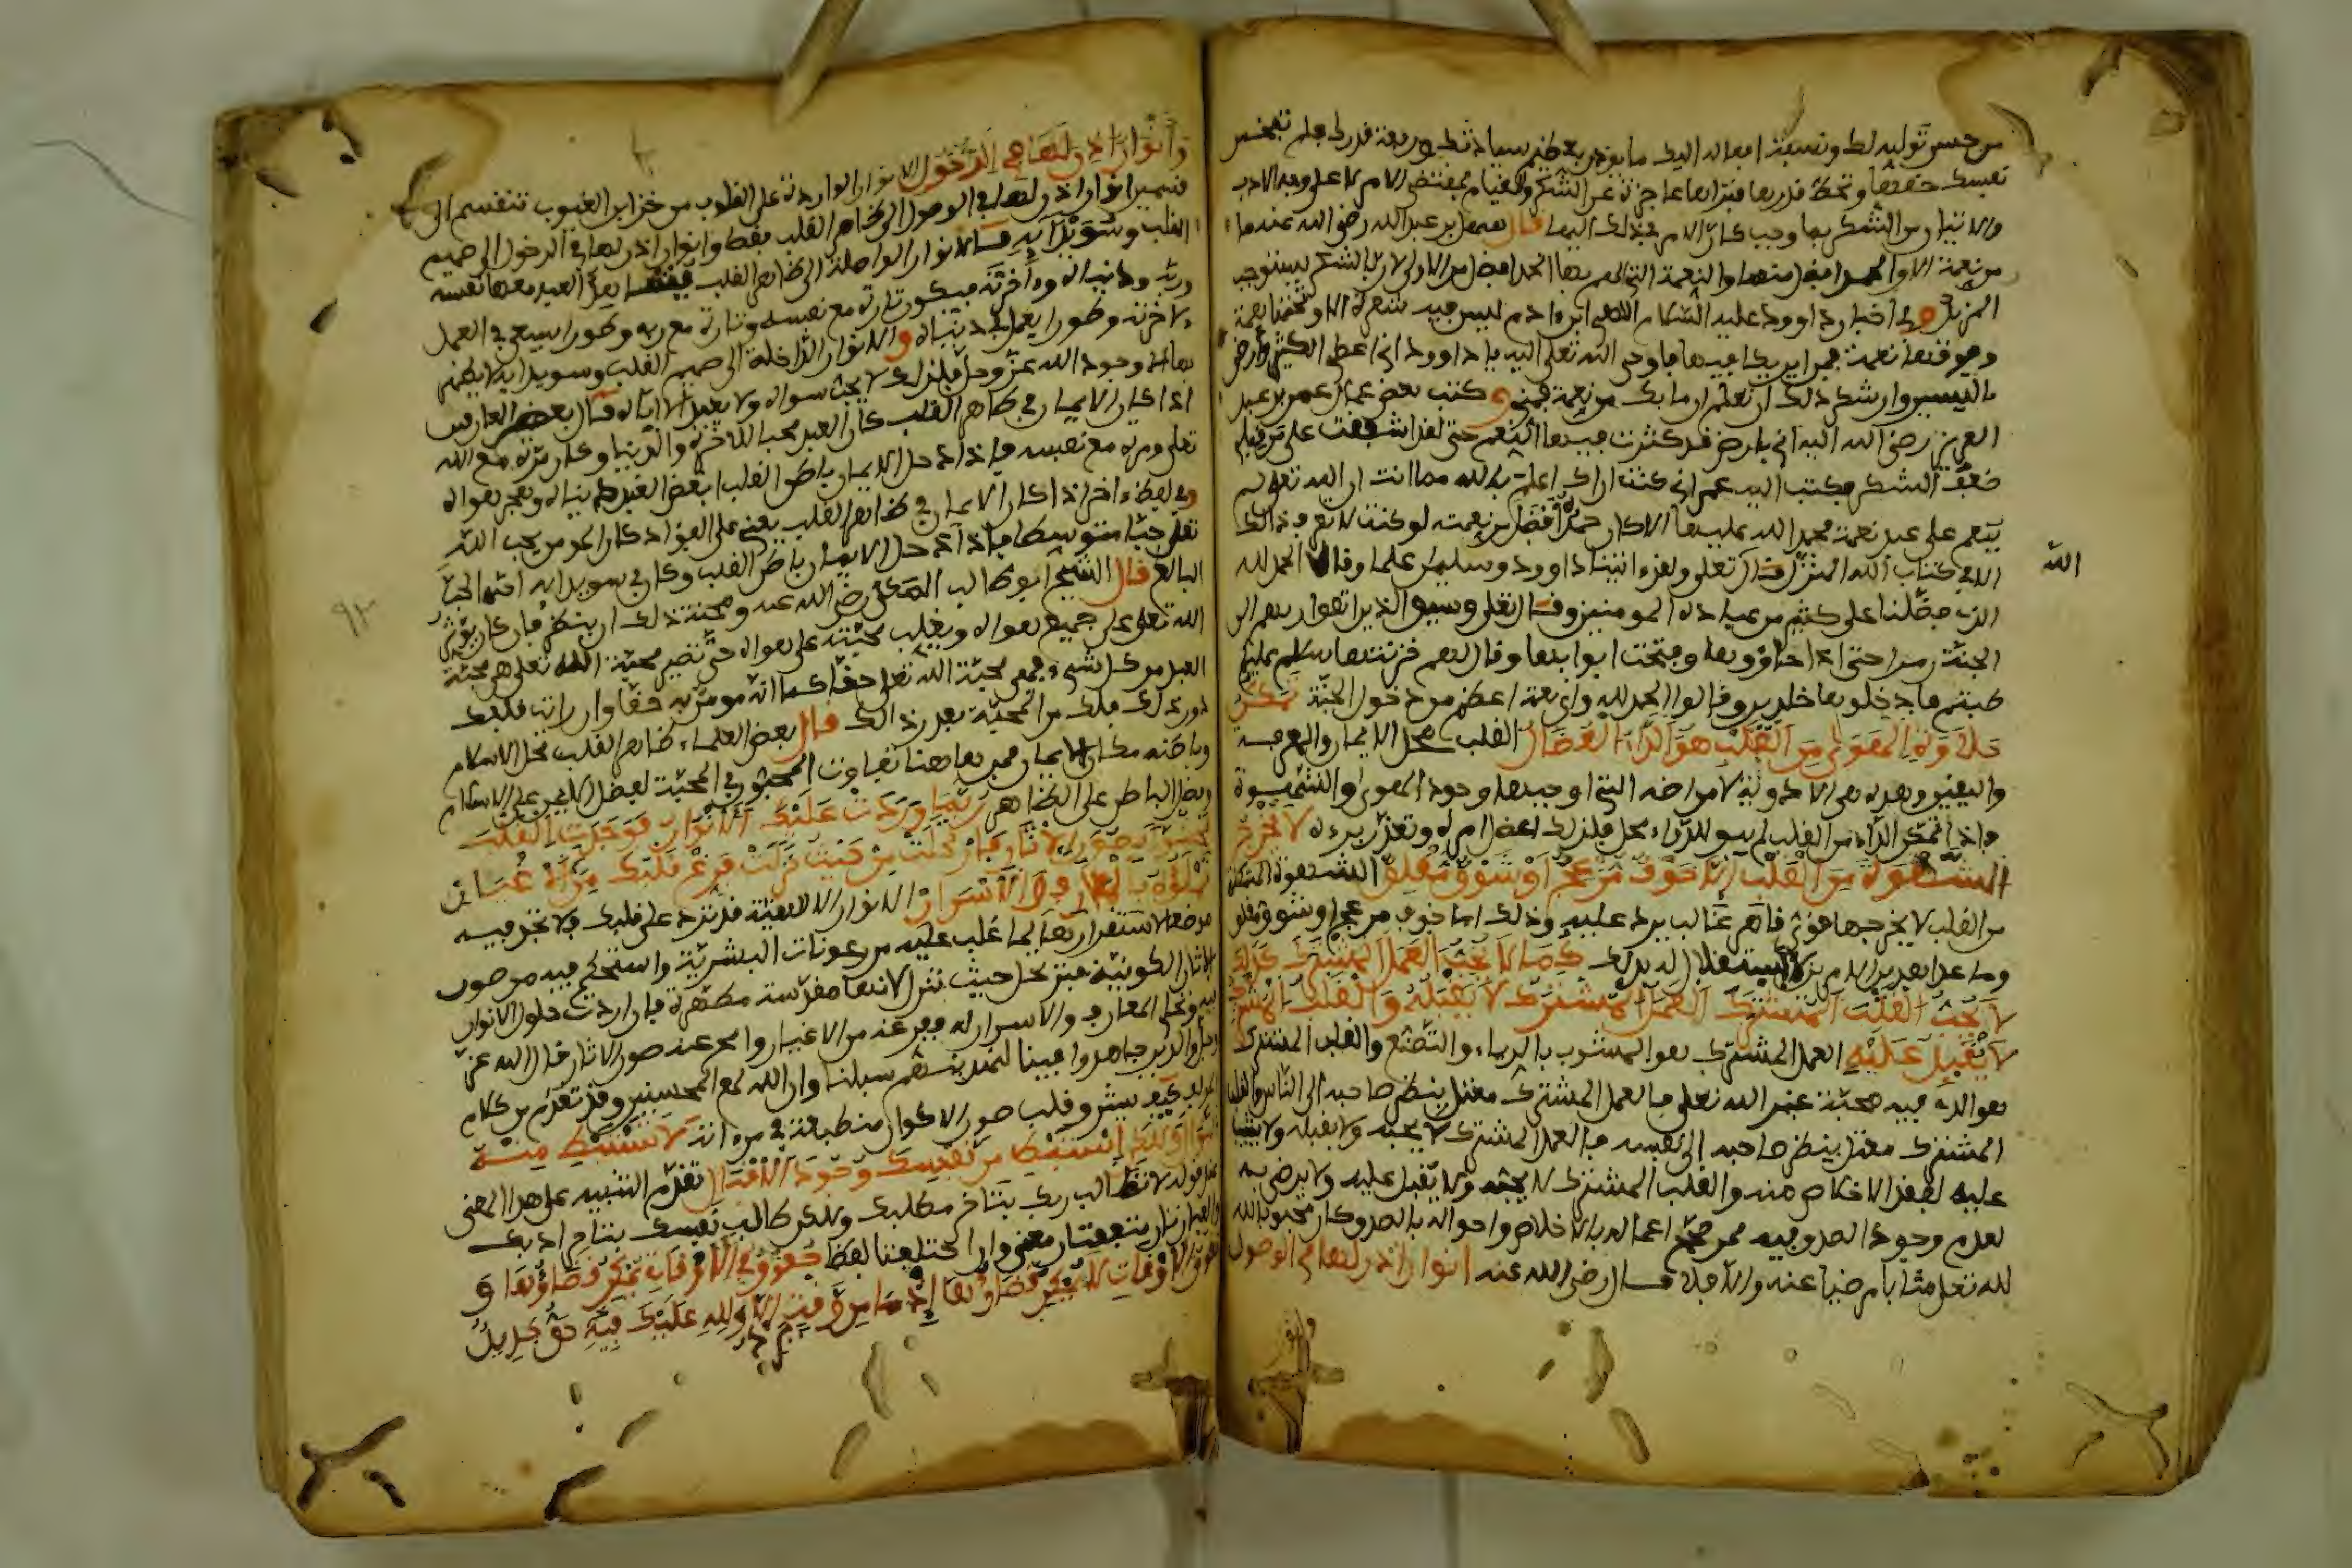 من حسن توليه لك ونسبة افعاله اليك ما يوذن بعظيم سيادتك ورفعة قدرك فلم تبخس
نفسك حقها وتحط قدرها فتراها عاجزة عن الشكر والقيام بمقتضى الامر لا على وجه الادب
من نعمة الا والحمد افضل منها والنعمة التي الهم بها الحمد افضل من الاولى لان بالشكر يستوجب
المزيد وفي اخبار داوود عليه السلام الهي ابن ادم ليس فيه شعرة الا وتحتها نعمة
وفوقها نعمة فمن اين يكافيها فاوحى الله تعلى اليه يا داوود اني اعطي الكثير وارضى
باليسير وان شكر ذلك ان تعلم ان ما بك من نعمة فمني وكتب بعض عمال عمر بن عبد
العزيز رضي الله اليه اني بارض قد كثرت فيها النعم حتى لقد اشفقت على من قبلي
ضعف الشكر فكتب اليه عمر اني كنت اراك اعلم بالله مما انت ان الله تعلى لم
ينعم على عبد نعمة فحمد الله عليها الا كان حمده افضل من نعمته لو كنت لا تعرف ذلك
الا في كتاب الله المنزل قال تعلى ولقد اتينا داوود وسليمن علما وقالا الحمد لله
الله
الذي فضلنا على كثير من عباده المومنين وقال تعلى وسيق الذين اتقوا ربهم الى
الجنة زمرا حتى اذا جاءوها وفتحت ابوابها وقال لهم خزنتها سلم عليكم
طبتم فادخلوها خلدين وقالوا الحمد لله واي نعمة اعظم من دخول الجنة تمكن
حلاوة الهوى من القلب هو الداء العضال القلب محل الايمان والمعرفة
واليقين وهذه هي الادوية لامراضه التي اوجبها وجود الهوى والشهوة
واذا تمكن الداء من القلب لم يبق للدواء محل فلذلك اعضل امره وتعذر برءه لا يخرج
الشهوة من القلب الا خوف مزعج او شوق مقلق الشهوة المتمكنة
من القلب لا يخرجها هوى قاهر غالب يرد عليه وذلك اما خوف مزعج او شوق مقلق
وما عدا هذين الامرين لا يستقل له بذلك كما لا يحب العمل المشترك كذلك
لا يحب القلب المشترك العمل المشترك لا يقبله والقلب المشترك
لا يقبل عليه العمل المشترك هو المشوب بالرياء والتصنع والقلب المشترك
هو الذي فيه محبة غير الله تعلى فالعمل المشترك معتل بنظر صاحبه الى الناس والقلب
المشترك معتل بنظر صاحبه الى نفسه فالعمل المشترك لا يحبه ولا يقبله ولا يثيب
عليه لفقد الاخلاص منه والقلب المشترك لا يحبه ولا يقبل عليه ولا يرضى به
لعدم وجود الصدق فيه فمن صحح اعماله بالاخلاص واحواله بالصدق كان محبوبا لله
لله تعلى مثابا مرضيا عنه والا فلا قال رضي الله عنه انوار اذن لها في الوصول
وانوار اذن لها في الدخول الانوار الواردة على القلوب من خزاين الغيوب تنقسم الى
قسمين انوار اذن لها في الوصول الى ظاهر القلب فقط وانوار اذن لها في الدخول الى صميم
القلب وسويدايه فالانوار الواصلة الى ظاهر القلب يشاهد العبد معها نفسه
وربه ودنياه واخرته فيكون تارة مع نفسه وتارة مع ربه وطورا يسعى في العمل
لاخرته وطورا يعمل في دنياه والانوار الداخلة الى صميم القلب وسويدايه لا يظهر
بها الا وجود الله عز وجل فلذلك لا يحب سواه ولا يعبد الا اياه قال بعض العارفين
اذا كان الايمان في ظاهر القلب كان العبد محبا للاخرة والدنيا وكان مرة مع الله
تعلى ومرة مع نفسه فاذا دخل الايمان باطن القلب ابغض العبد دنياه وهجر هواه
وفي لفظ اخر اذا كان الايمان في ظاهر القلب يعني على الفؤاد كان المومن يحب الله
تعلى حبا متوسطا فاذا دخل الايمان باطن القلب وكان في سويدايه احبه الحب
البالغ قال الشيخ ابو طالب المكي رضي الله عنه ومحنة ذلك ان ينظر فان كان يوثر
الله تعلى على جميع هواه ويغلب محبته على هواه حتى تصير محبة الله تعلى هي محبة
العبد من كل شيء فهو محب الله تعلى حقا كما انه مومن به حقا وان رايت قلبك
دون ذلك فلك من المحبة بقدر ذلك قال بعض العلماء ظاهر القلب محل الاسلام
وباطنه مكان الايمان فمن هاهنا تفاوت المحبون في المحبة لفضل الايمان على الاسلام
وفضل الباطن على الظاهر ربما وردت عليك الانوار فوجدت القلب
محشوا بصور الاثار فارتحلت من حيث نزلت فرغ قلبك من الاغيار
تملؤه بالمعارف والاسرار الانوار الالهية قد ترد على قلبك فلا تجد فيه
موضعا لاستقرارها لما غلب عليه من رعونات البشرية واستحكم فيه من صور
الاثار الكونية فترتحل حيث نزلت لانها مقدسة مطهرة فان اردت حلول الانوار
فيه وتجلي المعارف والاسرار له ففرغه من الاغيار وامح عنه صور الاثار قال الله عز
وجل والذين جاهدوا فينا لنهدينهم سبلنا وان الله لمع المحسنين وقد تقدم من كلام
المولف كيف يشرق قلب صور الاكوان منطبعة في مرءاته لا تستبطئ منه
النوال ولكن استبطئ من نفسك وجود الاقبال تقدم التنبيه على هذا المعنى
عند قوله لا تطالب ربك بتاخر مطلبك ولكن طالب نفسك بتاخر ادبك
والعبارتان متفقتان معنى وان اختلفتا لفظا حقوق في الاوقات يمكن قضاؤها و
حقوق الاوقات لا يمكن قضاؤها اذ ما من وقت الا ولله عليك فيه حق جديد
٩٣